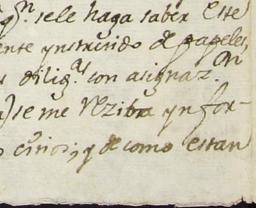 qn. sele haga saber este
ente ynstruido de papeles,
s dilig.as con asignaz.on
se me rreziba ynfor-
o cinios, y de como estan